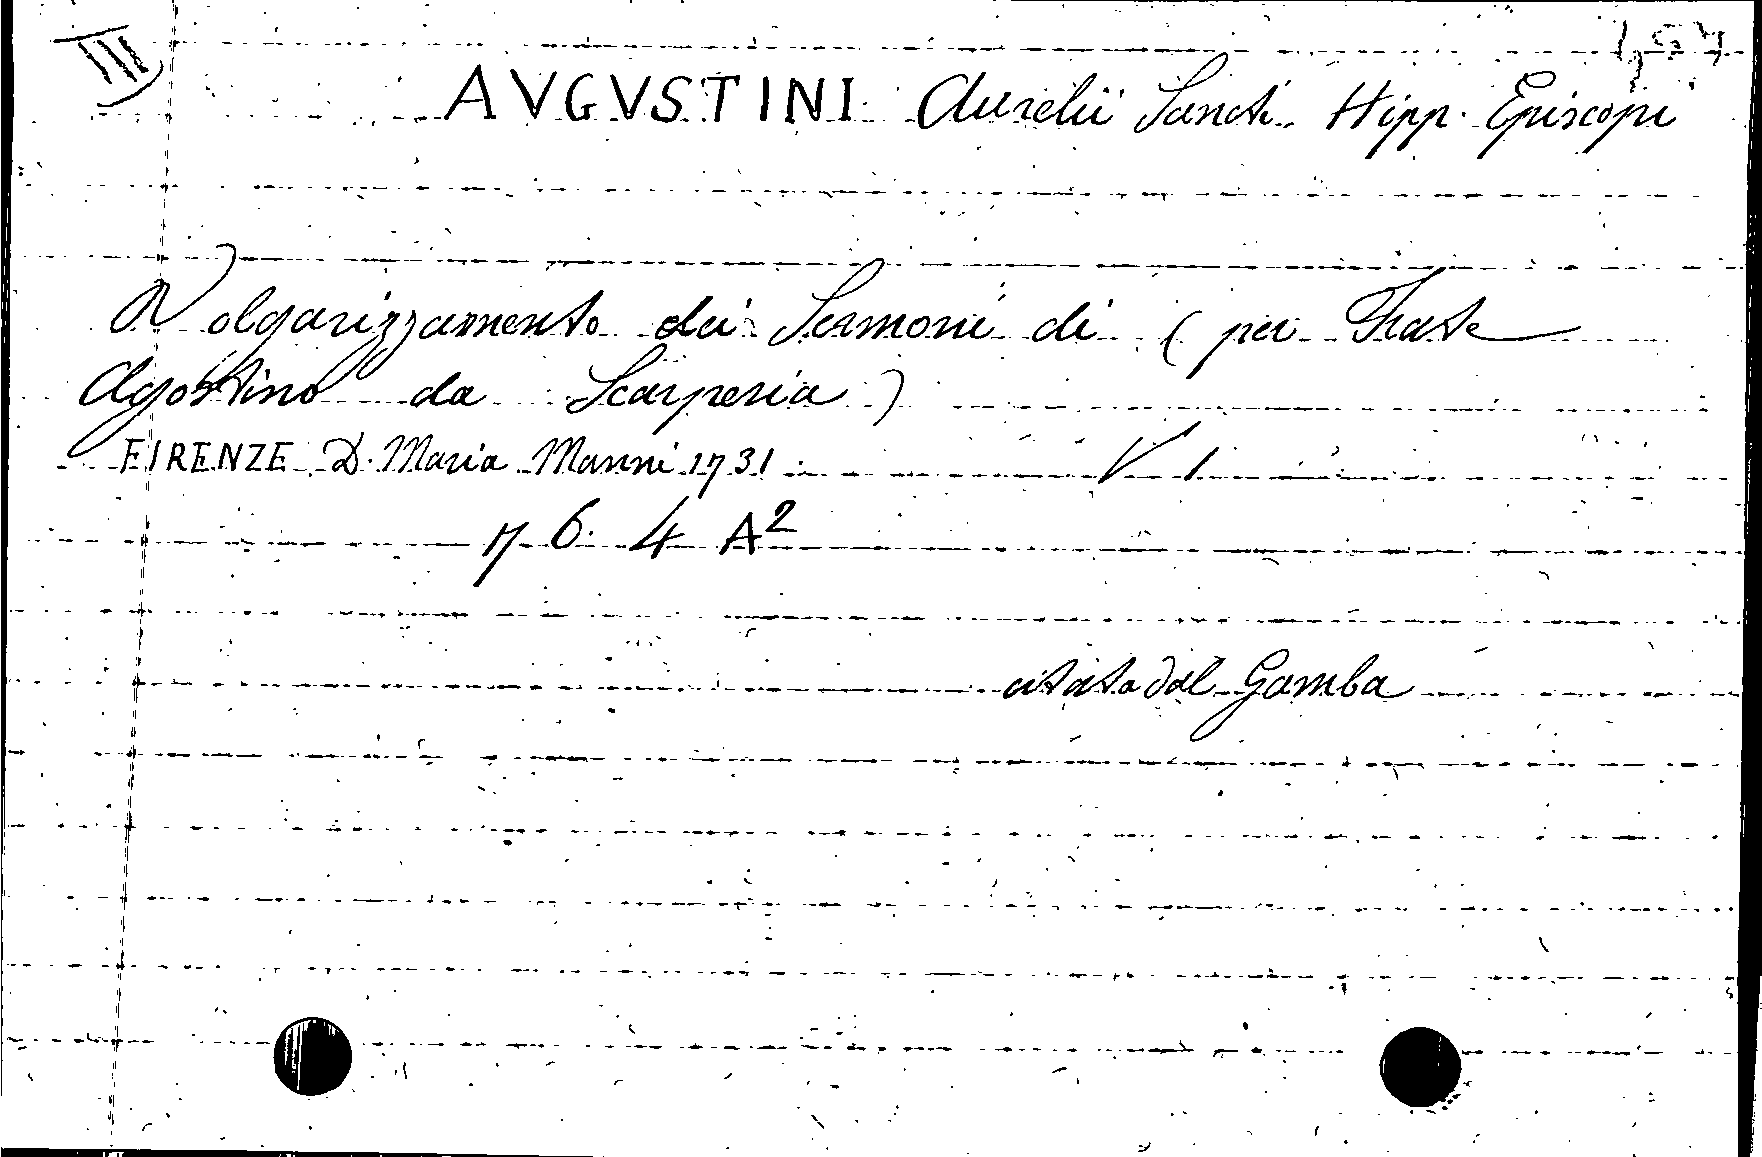 III
AVGVSTINI Aurelii Sancti Hipp. Episcopi
Volgarizzamento dei Sermoni di (per Frate
Agostino da Scarperia)
FIRENZE D. Maria Manni 1731 V 1
7 6. 4 A²
citato dal Gamba